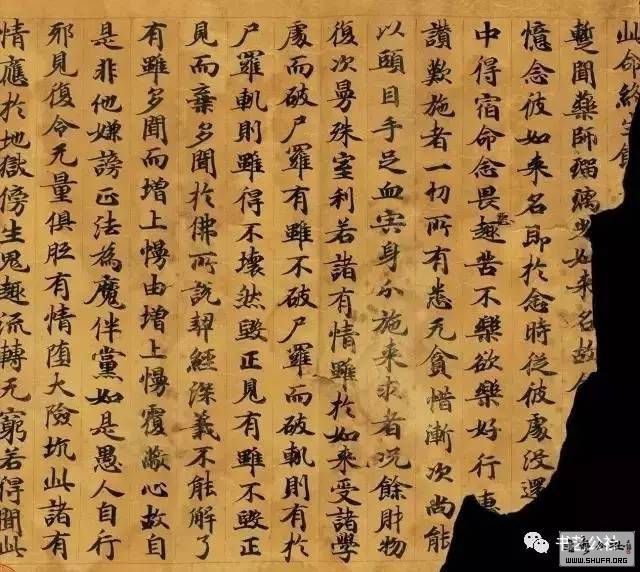 此命終生餓
暫聞藥師瑠璃光如来名故今
憶念彼如来名即於念時從彼處没還
中得宿命念畏惡趣苦不樂欲樂好行惠
讚歎施者一切所有悉无貪惜漸次尚能
以頭目手足血宍身分施来求者况餘財物
復次曼殊室利若諸有情雖於如来受諸學
處而破尸羅有雖不破尸羅而破軌則有於
尸羅軌則雖得不壞然毀正見有雖不毀正
見而棄多聞於佛所說契經深義不能解了
有雖多聞而增上慢由增上慢覆蔽心故自
是非他嫌謗正法為魔伴黨如是愚人自行
邪見復令无量俱胝有情墮大險坑此諸有
情應於地獄傍生鬼趣流轉无窮若得聞此
书艺公社
WWW.SHUFA.ORG